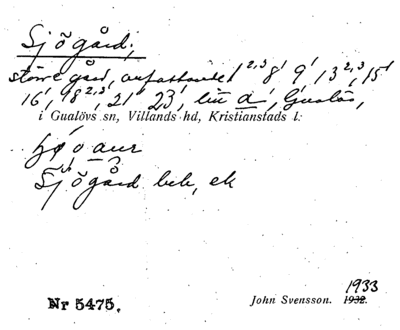 Sjögård,
större gård, omfattande 1 2,3 8 1 9 1 13 2,3, 15 1
16 1, 98 2,3, 21 1 23 1, litt a, Gualöv,
i Gualövs sn, Villands hd, Kristianstads l:
Sjögård beb, ek
1933
Nr 5475. John Svensson. 1932.